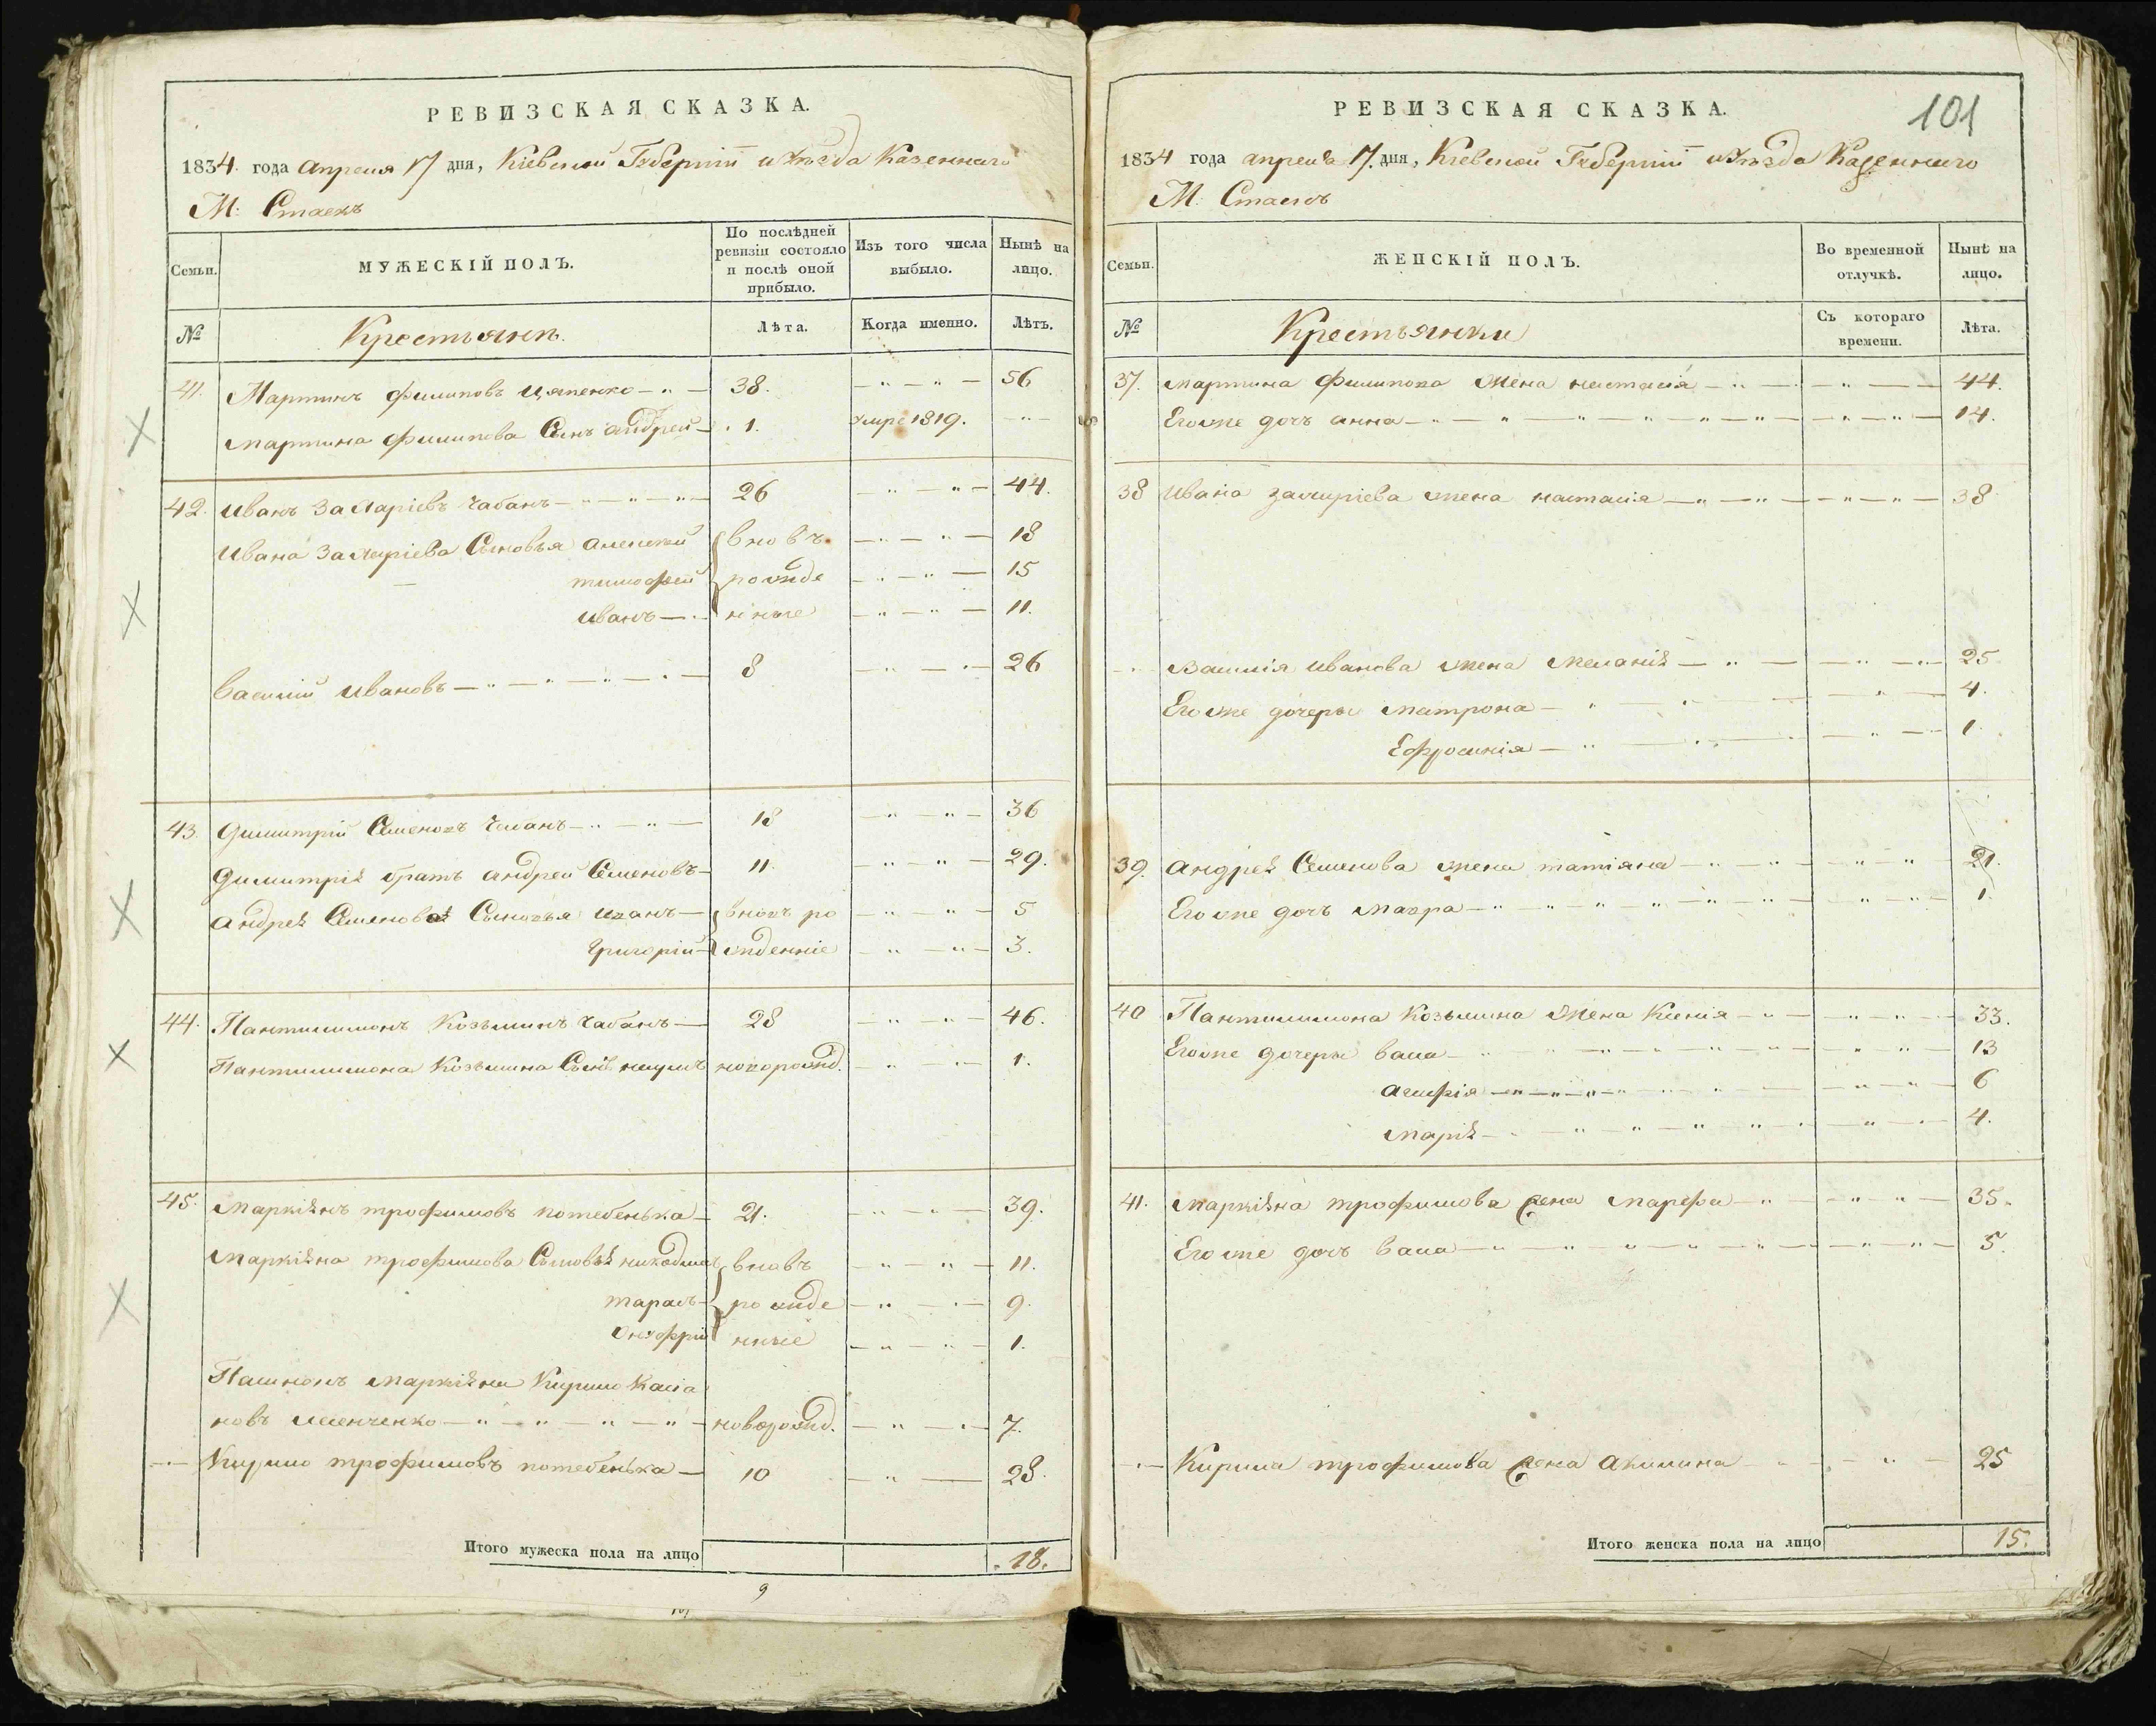 РЕВИЗСКАЯ СКАЗКА.
1834 года апреля 17 дня, Кіевской Губерніи уѣзда Казеннаго
М: Стаекъ
Семьи.
МУЖЕСКІЙ ПОЛЪ.
По послѣдней ревизіи состояло и послѣ оной прибыло.
Изъ того числа выбыло.
Нынѣ на лицо.
№
Крестьяне.
Лѣта.
Когда именно.
Лѣтъ.
41. Мартинъ филиповъ Цяпенко 38. 56
мартина филипова Сынъ андрей 1. умре 1819.
42. Иванъ Захаріевъ Чабанъ 26 44.
Ивана Захаріева Сыновья алексей вновъ 18
тимофей рожде 15
иванъ нные 11.
василій ивановъ 8 26
43. Димитрій Семеновъ Чабанъ 18 36
Димитрія братъ андрей Семеновъ 11. 29.
андрея Семенова Сыновья иванъ вновъ ро 5
григорій жденніе 3.
44. Пантилимонъ Козьминъ Чабанъ 28 46.
Пантилимона Козьмина Сынъ наумъ новорожд. 1.
45. маркіянъ трофимовъ потебенька 21. 39.
маркіяна трофимова Сыновья никодимъ вновъ 11.
тарасъ рожде 9.
онуфрій нные 1.
маркіяна Кирило Касіа
новъ новорожд. 7.
Кирило трофимовъ потебенька 10 28.
Итого мужеска пола на лицо 18.
9
РЕВИЗСКАЯ СКАЗКА.
101
1834 года апреля 17. дня, Кіевской Губерніи уѣзда Казеннаго
М: Стаекъ
Семьи.
ЖЕНСКІЙ ПОЛЪ.
Во временной отлучкѣ.
Нынѣ на лицо.
№
Крестьянки
Съ котораго времени.
Лѣта.
37. мартина филипова жена настасія 44.
Его же дочь анна 14.
38 Ивана захаріева жена настасія 38
Василія иванова жена меланія 25
Его же дочери матрона 4.
Ефросинія 1.
39. андрея Семенова жена татіяна 21.
Его же дочь мавра 1.
40 Пантилимона Козьмина жена Ксенія 33.
Его же дочери васа 13
агафія 6
марія 4.
41. маркіяна трофимова жена марфа 35.
Его же дочь васа 5.
Кирила трофимова жена акилина 25
Итого женска пола на лицо 15.